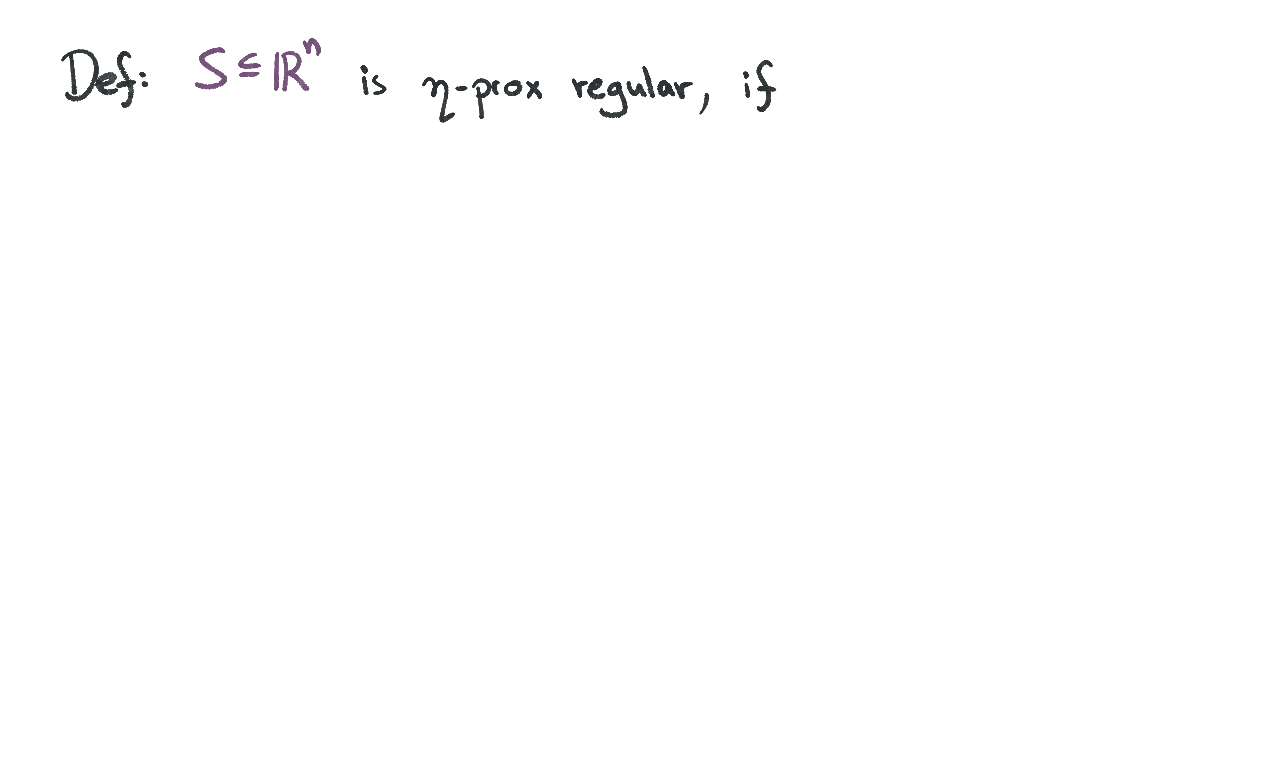 Def: S ⊆ ℝⁿ is η-prox regular, if